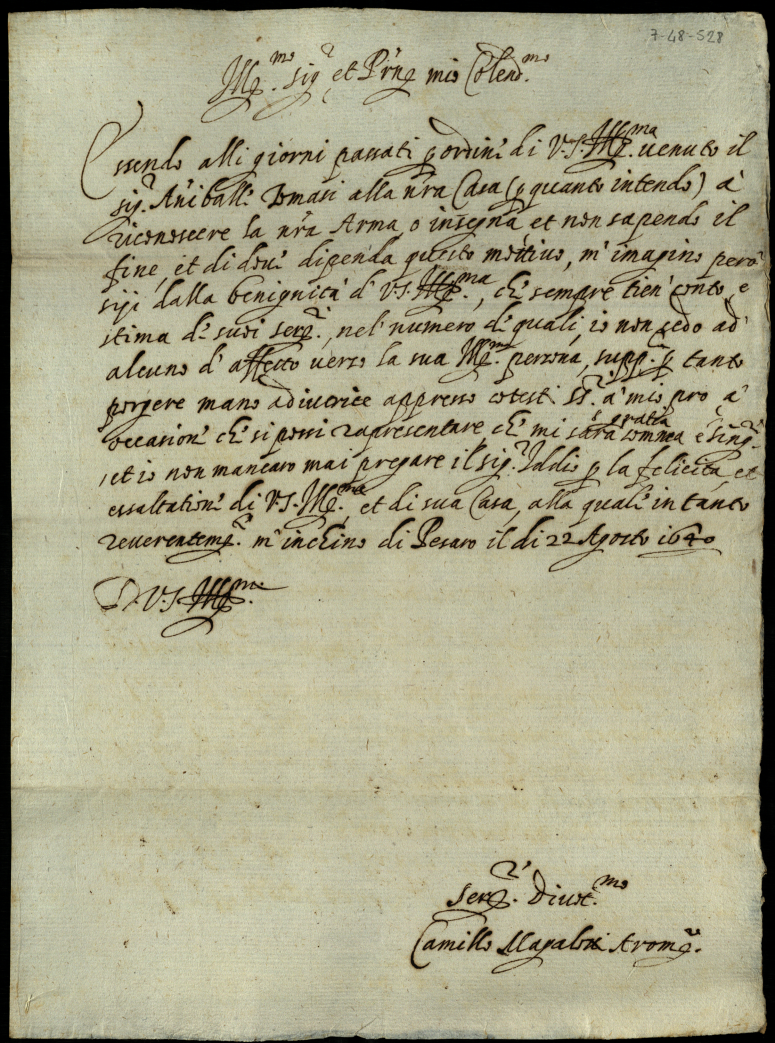 7-48-528
Ill.mo Sig.r et P'rne mio Colend.mo
Essendo alli giorni passati p ordin' di V.S. Ill.ma uenuto il
sig.r Aniball' Tomasi alla n'ra Casa (p quanto intendo) à
riconoscere la n'ra Arma, o insegna et non sapendo il
fine, et di dou' dipenda questo motiuo, m'imagino però
siji dalla benignità d' V.S. Ill.ma, ch' sempre tien' conto, e
stima d' suoi ser.ri, nel' numero d' quali, io non cedo ad'
alcuno d' affecto uerso la sua Ill.ma persona, supp. p tanto
porgere mano adiutrice appresso cotesti SS.ri à mio pro à
occasion' ch' si possi rapresentare ch' mi sarà gratia somma e sing.r
, et io non mancarò mai pregare il sig.r Iddio p la felicità, et
essaltation' di V.S. Ill.ma et di sua Casa, alla quale in tanto
reuerentem.te m'inchino di Pesaro il di 22 Agosto 1640
D. V.S. Ill.ma
Ser.re Diuot.mo
Camillo